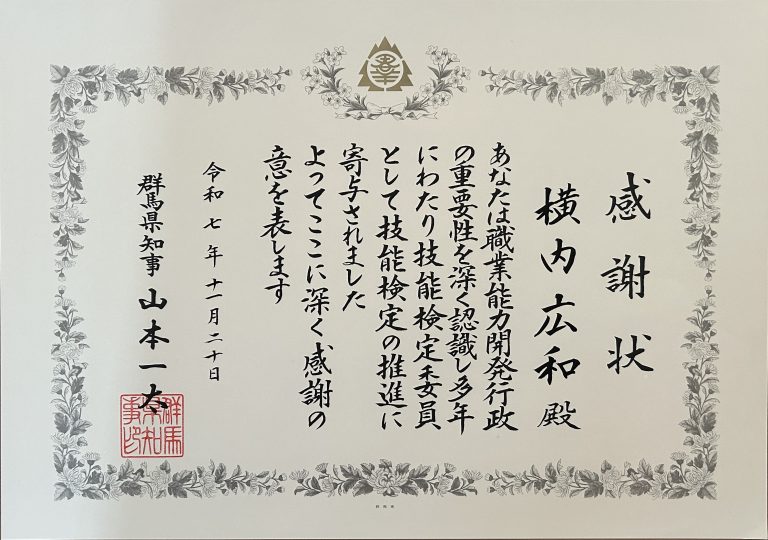 感謝状
横内広和殿
あなたは職業能力開発行政
の重要性を深く認識し多年
にわたり技能検定委員
として技能検定の推進に
寄与されました
よってここに深く感謝の
意を表します
令和七年十一月二十日
群馬県知事 山本一太
群馬
県知
事印
群馬県